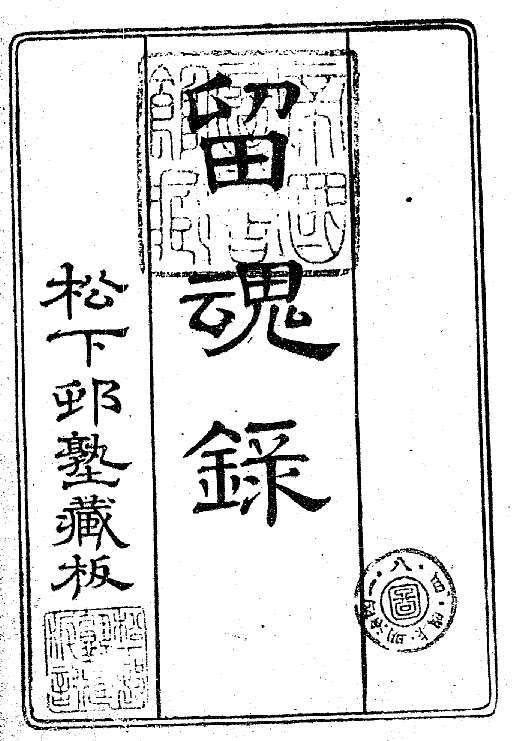 留魂錄
松下邨塾藏板
圖